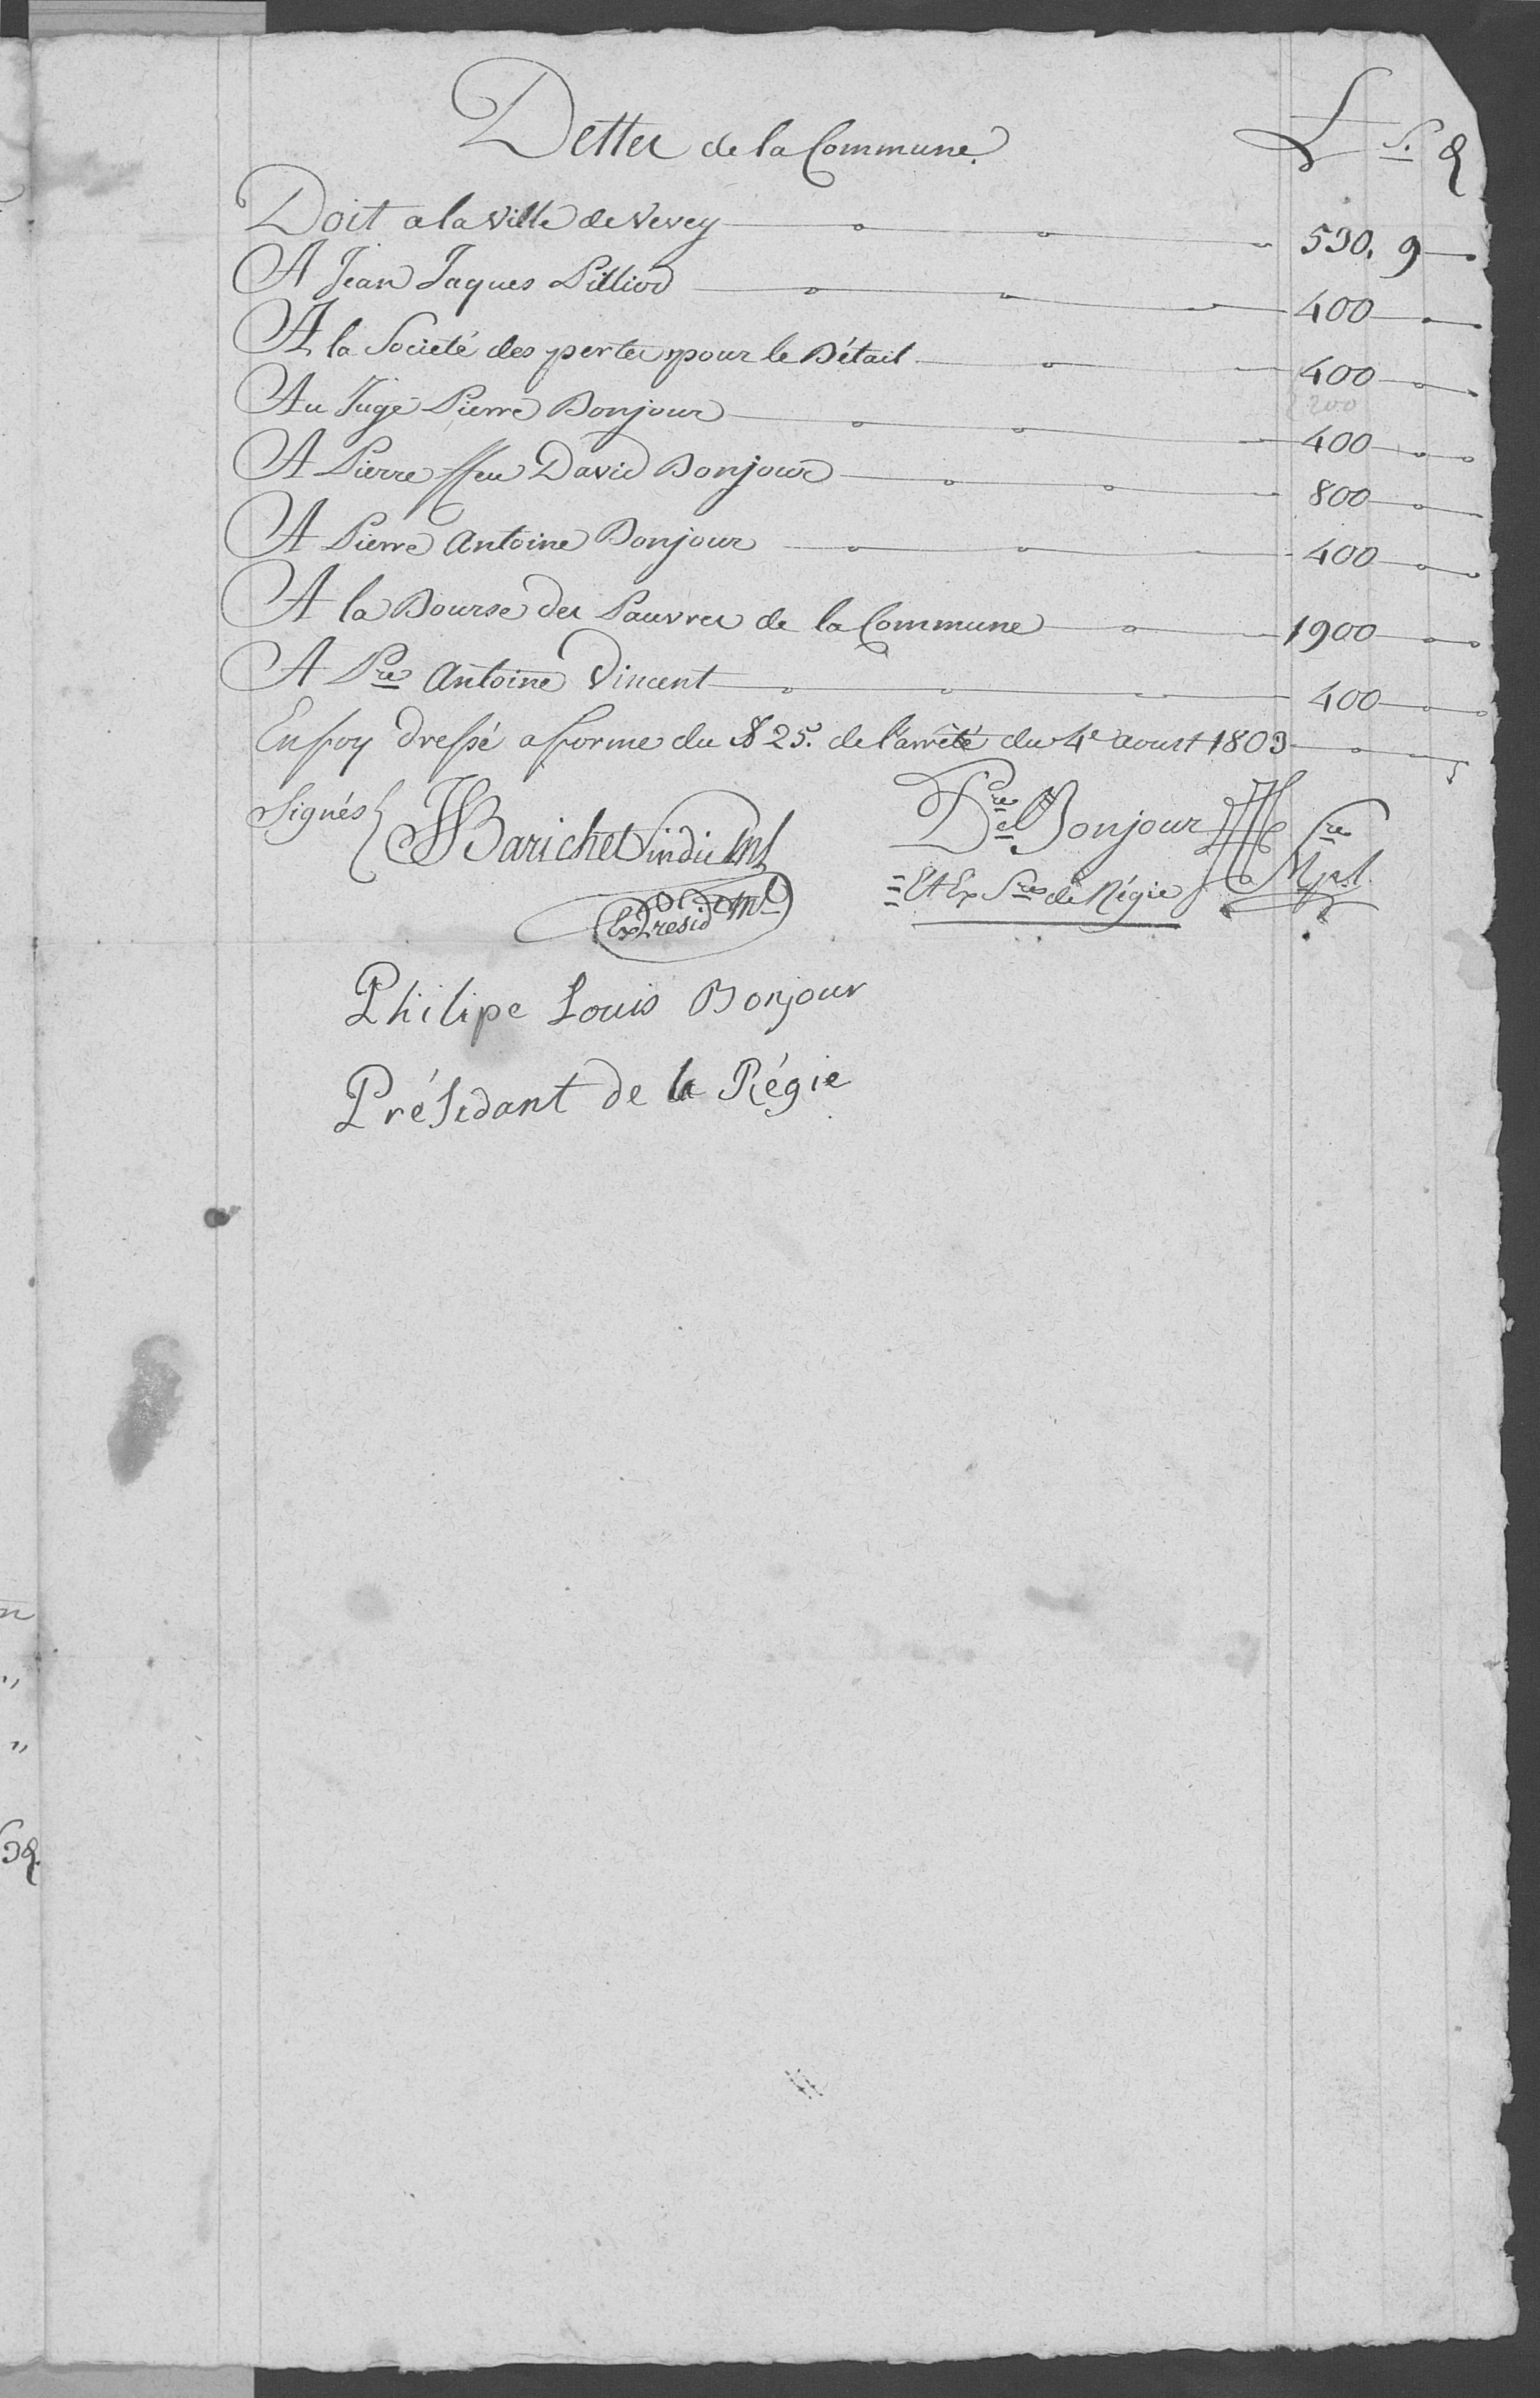 Dettes de la Commune. L S. d
Doit a la Ville de Vevey 530. 9
A Jean Jaques Pilliod 400
A la Societé des pertes pour le Bétail 400
200
Au Juge Pierre Bonjour 400
A Pierre ffeu David Bonjour 800
A Pierre Antoine Bonjour 400
A la Bourse des Pauvres de la Commune 1900
A Pre Antoine Vincent 400
En foy dressé a forme du § 25. de l'arrêté du 4e aoust 1803
Signés JJBarichet Sindic Ml
Ex Presid
Pre Bonjour Sre Mpl.
Et Ex Sre de Régie
Philipe Louis Bonjour
Présidant de la Régie